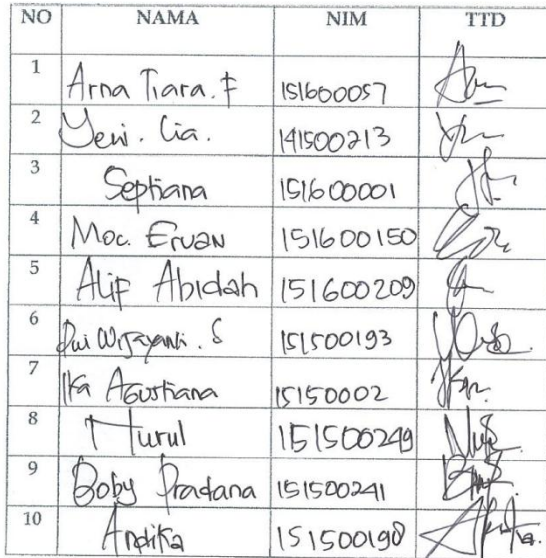 NO NAMA NIM TTD
1 Arna Tiara. F 151600057
2 Yeni. Cia. 141500213
3 Septiana 151600001
4 Moc. Ervan 151600150
5 Alif Abidah 151600209
6 Dwi Wijayanti. S 151500193
7 Ika Agustiana 15150002
8 Nurul 151500249
9 Boby Pradana 151500241
10 Andika 151500198